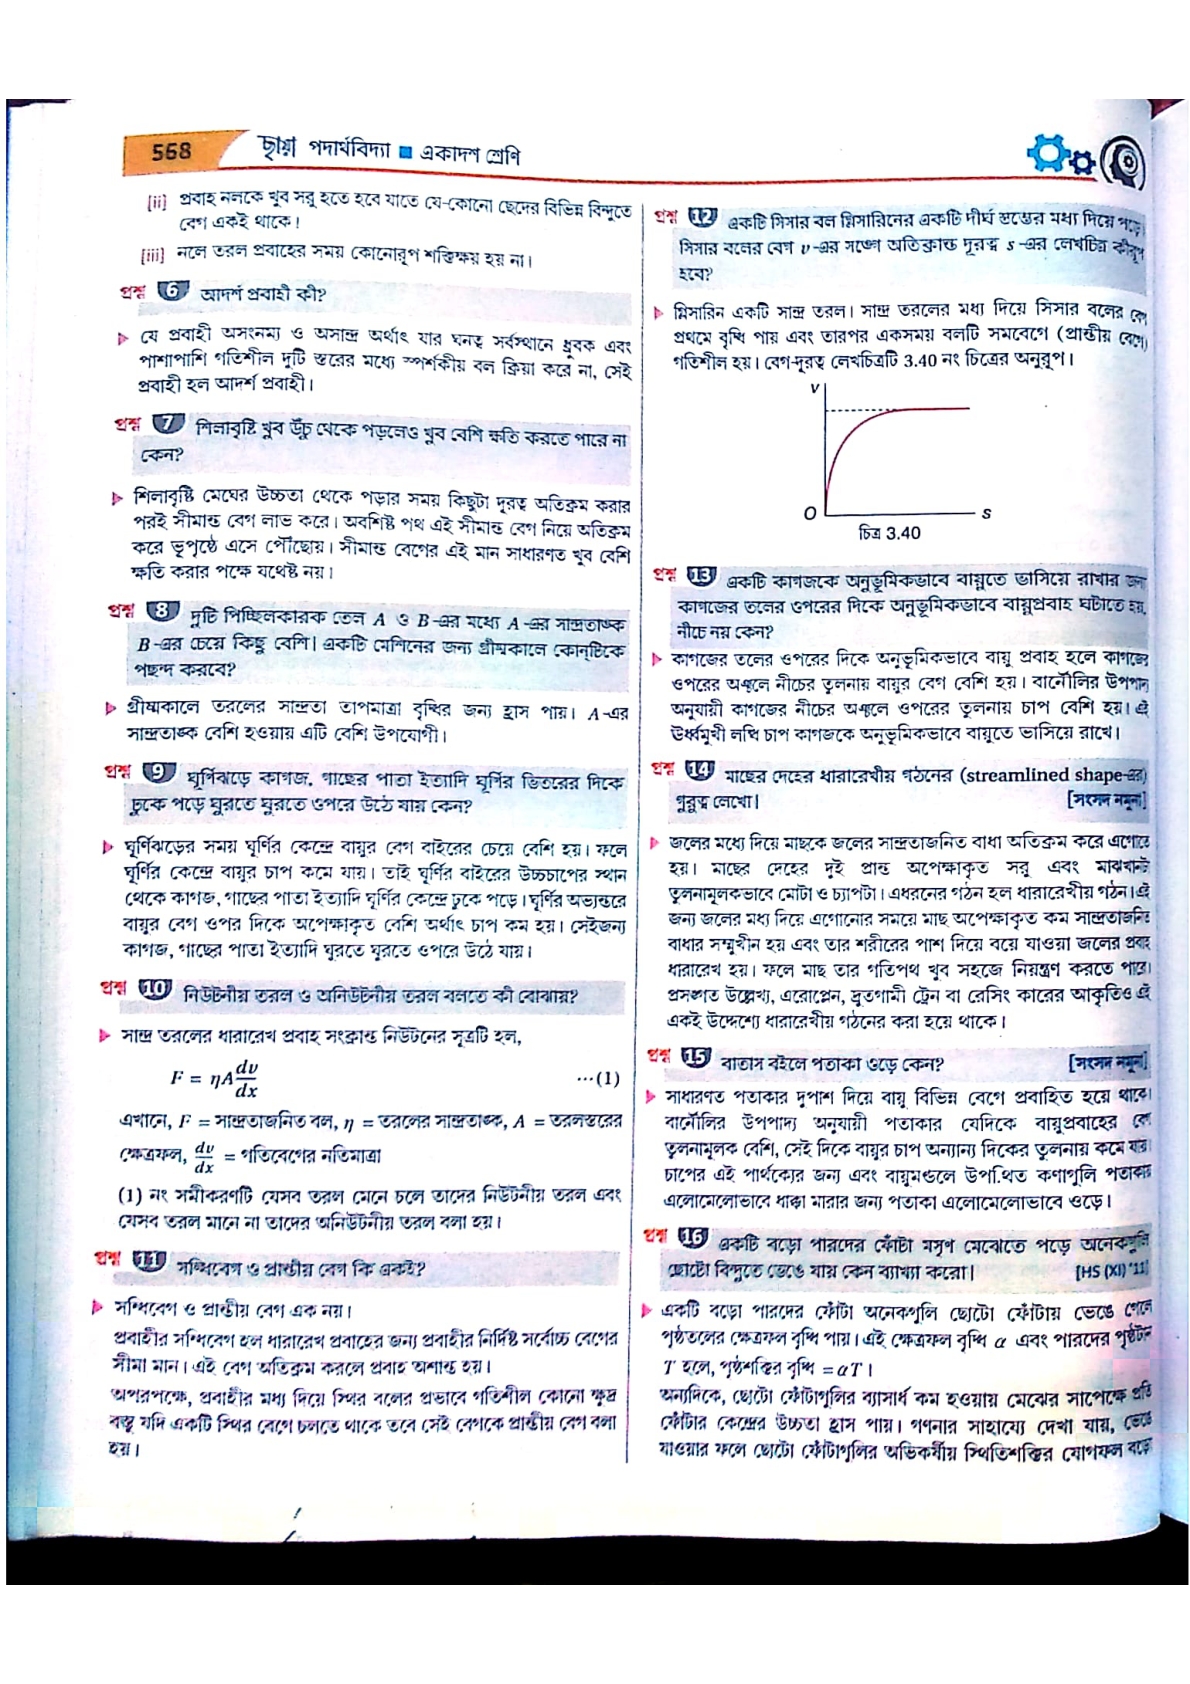 568
ছায়া পদার্থবিদ্যা ■ একাদশ শ্রেণি
[ii] প্রবাহ নলকে খুব সরু হতে হবে যাতে যে-কোনো ছেদের বিভিন্ন বিন্দুতে
বেগ একই থাকে।
[iii] নলে তরল প্রবাহের সময় কোনোরূপ শক্তিক্ষয় হয় না।
প্রশ্ন 6 আদর্শ প্রবাহী কী?
যে প্রবাহী অসংনম্য ও অসান্দ্র অর্থাৎ যার ঘনত্ব সর্বস্থানে ধ্রুবক এবং
পাশাপাশি গতিশীল দুটি স্তরের মধ্যে স্পর্শকীয় বল ক্রিয়া করে না, সেই
প্রবাহী হল আদর্শ প্রবাহী।
প্রশ্ন 7 শিলাবৃষ্টি খুব উঁচু থেকে পড়লেও খুব বেশি ক্ষতি করতে পারে না
কেন?
শিলাবৃষ্টি মেঘের উচ্চতা থেকে পড়ার সময় কিছুটা দূরত্ব অতিক্রম করার
পরই সীমান্ত বেগ লাভ করে। অবশিষ্ট পথ এই সীমান্ত বেগ নিয়ে অতিক্রম
করে ভূপৃষ্ঠে এসে পৌঁছোয়। সীমান্ত বেগের এই মান সাধারণত খুব বেশি
ক্ষতি করার পক্ষে যথেষ্ট নয়।
প্রশ্ন 8 দুটি পিচ্ছিলকারক তেল A ও B-এর মধ্যে A-এর সান্দ্রতাঙ্ক
B-এর চেয়ে কিছু বেশি। একটি মেশিনের জন্য গ্রীষ্মকালে কোনটিকে
পছন্দ করবে?
গ্রীষ্মকালে তরলের সান্দ্রতা তাপমাত্রা বৃদ্ধির জন্য হ্রাস পায়। A-এর
সান্দ্রতাঙ্ক বেশি হওয়ায় এটি বেশি উপযোগী।
প্রশ্ন 9 ঘূর্ণিঝড়ে কাগজ, গাছের পাতা ইত্যাদি ঘূর্ণির ভিতরের দিকে
ঢুকে পড়ে ঘুরতে ঘুরতে ওপরে উঠে যায় কেন?
ঘূর্ণিঝড়ের সময় ঘূর্ণির কেন্দ্রে বায়ুর বেগ বাইরের চেয়ে বেশি হয়। ফলে
ঘূর্ণির কেন্দ্রে বায়ুর চাপ কমে যায়। তাই ঘূর্ণির বাইরের উচ্চচাপের স্থান
থেকে কাগজ, গাছের পাতা ইত্যাদি ঘূর্ণির কেন্দ্রে ঢুকে পড়ে। ঘূর্ণির অভ্যন্তরে
বায়ুর বেগ ওপর দিকে অপেক্ষাকৃত বেশি অর্থাৎ চাপ কম হয়। সেইজন্য
কাগজ, গাছের পাতা ইত্যাদি ঘুরতে ঘুরতে ওপরে উঠে যায়।
প্রশ্ন 10 নিউটনীয় তরল ও অনিউটনীয় তরল বলতে কী বোঝায়?
সান্দ্র তরলের ধারারেখ প্রবাহ সংক্রান্ত নিউটনের সূত্রটি হল,
F = ηA dv/dx ...(1)
এখানে, F = সান্দ্রতাজনিত বল, η = তরলের সান্দ্রতাঙ্ক, A = তরলস্তরের
ক্ষেত্রফল, dv/dx = গতিবেগের নতিমাত্রা
(1) নং সমীকরণটি যেসব তরল মেনে চলে তাদের নিউটনীয় তরল এবং
যেসব তরল মানে না তাদের অনিউটনীয় তরল বলা হয়।
প্রশ্ন 11 সন্ধিবেগ ও প্রান্তীয় বেগ কি একই?
সন্ধিবেগ ও প্রান্তীয় বেগ এক নয়।
প্রবাহীর সন্ধিবেগ হল ধারারেখ প্রবাহের জন্য প্রবাহীর নির্দিষ্ট সর্বোচ্চ বেগের
সীমা মান। এই বেগ অতিক্রম করলে প্রবাহ অশান্ত হয়।
অপরপক্ষে, প্রবাহীর মধ্য দিয়ে স্থির বলের প্রভাবে গতিশীল কোনো ক্ষুদ্র
বস্তু যদি একটি স্থির বেগে চলতে থাকে তবে সেই বেগকে প্রান্তীয় বেগ বলা
হয়।
প্রশ্ন 12 একটি সিসার বল গ্লিসারিনের একটি দীর্ঘ স্তম্ভের মধ্য দিয়ে পড়ে।
সিসার বলের বেগ v-এর সঙ্গে অতিক্রান্ত দূরত্ব s-এর লেখচিত্র কীরূপ
হবে?
গ্লিসারিন একটি সান্দ্র তরল। সান্দ্র তরলের মধ্য দিয়ে সিসার বলের বেগ
প্রথমে বৃদ্ধি পায় এবং তারপর একসময় বলটি সমবেগে (প্রান্তীয় বেগে)
গতিশীল হয়। বেগ-দূরত্ব লেখচিত্রটি 3.40 নং চিত্রের অনুরূপ।
v
O s
চিত্র 3.40
প্রশ্ন 13 একটি কাগজকে অনুভূমিকভাবে বায়ুতে ভাসিয়ে রাখার জন্য
কাগজের তলের ওপরের দিকে অনুভূমিকভাবে বায়ুপ্রবাহ ঘটাতে হয়,
নীচে নয় কেন?
কাগজের তলের ওপরের দিকে অনুভূমিকভাবে বায়ু প্রবাহ হলে কাগজের
ওপরের অঞ্চলে নীচের তুলনায় বায়ুর বেগ বেশি হয়। বার্নৌলির উপপাদ্য
অনুযায়ী কাগজের নীচের অঞ্চলে ওপরের তুলনায় চাপ বেশি হয়। এই
ঊর্ধ্বমুখী লব্ধি চাপ কাগজকে অনুভূমিকভাবে বায়ুতে ভাসিয়ে রাখে।
প্রশ্ন 14 মাছের দেহের ধারারেখীয় গঠনের (streamlined shape-এর)
গুরুত্ব লেখো। [সংসদ নমুনা]
জলের মধ্যে দিয়ে মাছকে জলের সান্দ্রতাজনিত বাধা অতিক্রম করে এগোতে
হয়। মাছের দেহের দুই প্রান্ত অপেক্ষাকৃত সরু এবং মাঝখানটা
তুলনামূলকভাবে মোটা ও চ্যাপটা। এধরনের গঠন হল ধারারেখীয় গঠন। এই
জন্য জলের মধ্য দিয়ে এগোনোর সময়ে মাছ অপেক্ষাকৃত কম সান্দ্রতাজনিত
বাধার সম্মুখীন হয় এবং তার শরীরের পাশ দিয়ে বয়ে যাওয়া জলের প্রবাহ
ধারারেখ হয়। ফলে মাছ তার গতিপথ খুব সহজে নিয়ন্ত্রণ করতে পারে।
প্রসঙ্গত উল্লেখ্য, এরোপ্লেন, দ্রুতগামী ট্রেন বা রেসিং কারের আকৃতিও এই
একই উদ্দেশ্যে ধারারেখীয় গঠনের করা হয়ে থাকে।
প্রশ্ন 15 বাতাস বইলে পতাকা ওড়ে কেন? [সংসদ নমুনা]
সাধারণত পতাকার দুপাশ দিয়ে বায়ু বিভিন্ন বেগে প্রবাহিত হয়ে থাকে।
বার্নৌলির উপপাদ্য অনুযায়ী পতাকার যেদিকে বায়ুপ্রবাহের বেগ
তুলনামূলক বেশি, সেই দিকে বায়ুর চাপ অন্যান্য দিকের তুলনায় কমে যায়।
চাপের এই পার্থক্যের জন্য এবং বায়ুমণ্ডলে উপস্থিত কণাগুলি পতাকায়
এলোমেলোভাবে ধাক্কা মারার জন্য পতাকা এলোমেলোভাবে ওড়ে।
প্রশ্ন 16 একটি বড়ো পারদের ফোঁটা মসৃণ মেঝেতে পড়ে অনেকগুলি
ছোটো বিন্দুতে ভেঙে যায় কেন ব্যাখ্যা করো। [HS (XI) '11]
একটি বড়ো পারদের ফোঁটা অনেকগুলি ছোটো ফোঁটায় ভেঙে গেলে
পৃষ্ঠতলের ক্ষেত্রফল বৃদ্ধি পায়। এই ক্ষেত্রফল বৃদ্ধি α এবং পারদের পৃষ্ঠটান
T হলে, পৃষ্ঠশক্তির বৃদ্ধি = αT।
অন্যদিকে, ছোটো ফোঁটাগুলির ব্যাসার্ধ কম হওয়ায় মেঝের সাপেক্ষে প্রতি
ফোঁটার কেন্দ্রের উচ্চতা হ্রাস পায়। গণনার সাহায্যে দেখা যায়, ভেঙে
যাওয়ার ফলে ছোটো ফোঁটাগুলির অভিকর্ষীয় স্থিতিশক্তির যোগফল বড়ো